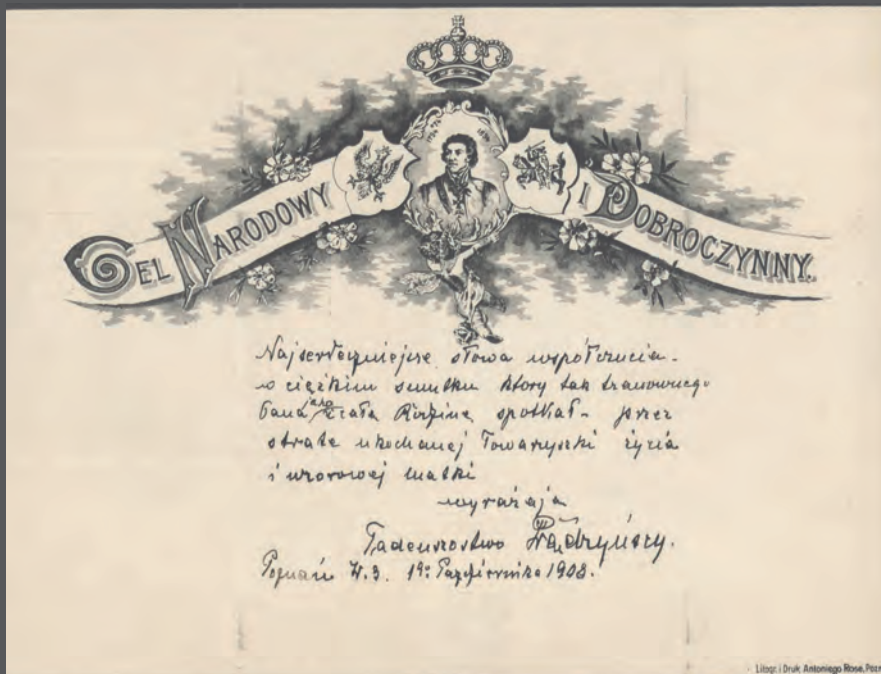 CEL NARODOWY I DOBROCZYNNY.
Najserdeczniejsze słowa współczucia
w ciężkim smutku który tak szanownego
Pana jako i całą Rodzinę spotkał - przez
stratę ukochanej Towaryszki życia
i wzorowej matki
wyrażają
Tadeuszostwo
Poznań W. 3. 19. Października 1908.
Litogr. i Druk Antoniego Rose, Poz